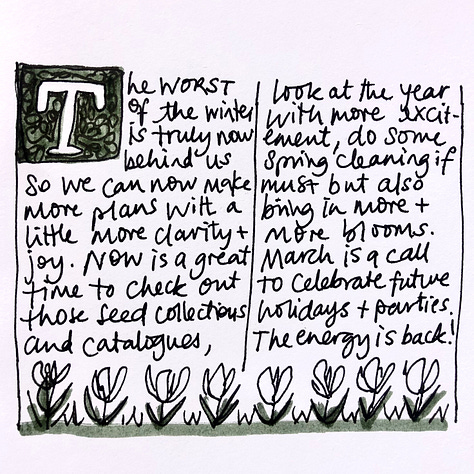 The WORST
of the winter
is truly now
behind us
So we can now make
more plans with a
little more clarity +
joy. Now is a great
time to check out
those seed collections
and catalogues,
look at the year
with more excit-
ement, do some
spring cleaning if
must but also
bring in more +
more blooms.
March is a call
to celebrate future
holidays + parties.
The energy is back!